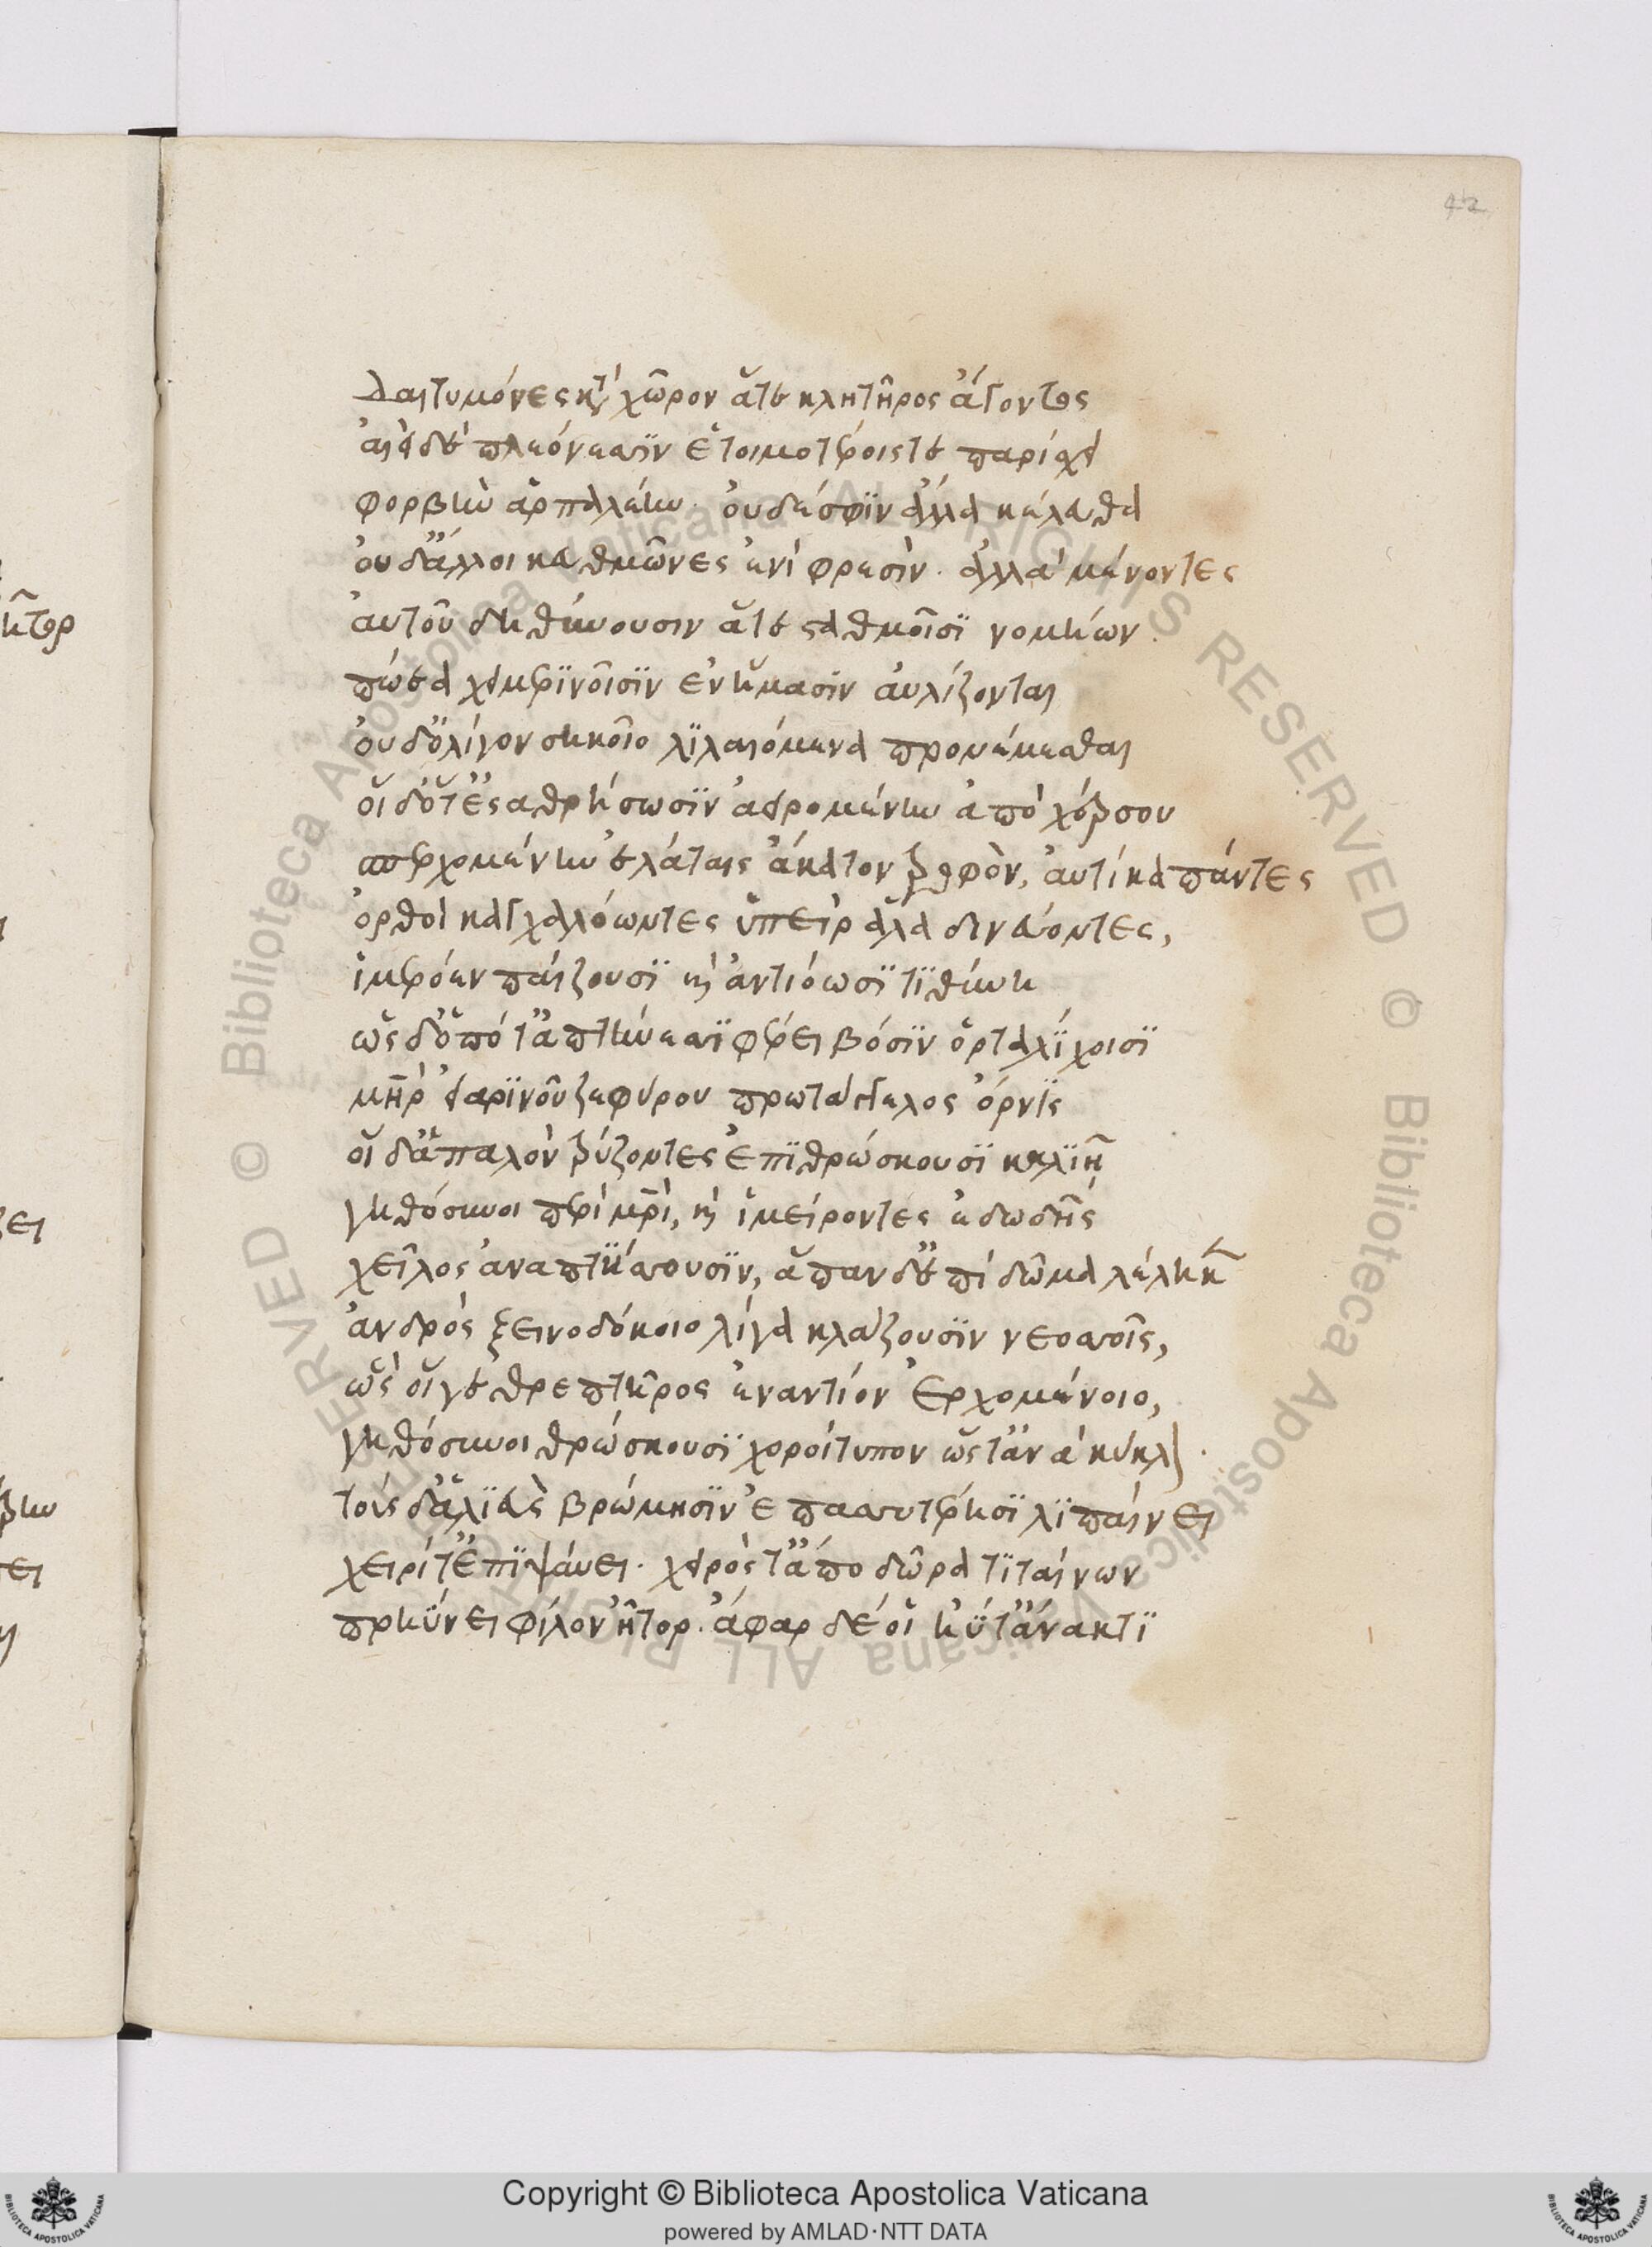 42
Δαιτυμόνες κατὰ χῶρον ἅτε κλητῆρος ἄγοντος
αἰεὶ δὲ πλεόνεσσιν ἑτοιμοτέροις τε παρίσχει
φορβὴν ἁρπαλέην· οὐδέ σφιν ἄλλα κέλευθα
οὐδ' ἄλλοι κευθμῶνες ἐνὶ φρεσίν· ἀλλὰ μένοντες
αὐτοῦ δηθύνουσιν ἅτε σταθμοῖσι νομήων
πώεα χειμερινοῖσιν ἐν ἤμασιν αὐλίζονται
οὐδ' ὀλίγον σηκοῖο λιλαιόμενα προνέμεσθαι
οἱ δ' ὅτ' ἐσαθρήσωσιν ἀειρομένην ἀπὸ χέρσου
σπερχομένην ἐλάταις ἄκατον τροφὸν, αὐτίκα πάντες
ὀρθοὶ καγχαλόωντες ὑπεὶρ ἅλα δινεύοντες,
ἱμερόεν παίζουσι καὶ ἀντιόωσι τιθήνη
ὡς δ' ὁπότ' ἀπτήνεσσι φέρει βόσιν ὀρταλίχοισι
μήτηρ εἰαρινοῦ ζεφύρου πρωτάγγελος ὄρνις
οἱ δ' ἁπαλὸν τρύζοντες ἐπιθρώσκουσι καλιῇ
γηθόσυνοι περὶ μητρὶ, καὶ ἱμείροντες ἐδωδῆς
χεῖλος ἀναπτύσσουσιν, ἅπαν δ' ἐπὶ δῶμα λέληκεν
ἀνδρὸς ξεινοδόκοιο λίγα κλάζουσιν νεοσσοῖς,
ὣς οἵγε θρεπτῆρος ἐναντίον ἐρχομένοιο,
γηθόσυνοι θρώσκουσι χοροίτυπον ὥς τ' ἀνὰ κύκλον·
τοὺς δ' ἁλιεὺς βρώμησιν ἐπασσυτέρησι λιπαίνει
χειρί τ' ἐπιψάυει· χειρός τ' ἄπο δῶρα τιταίνων
πρηΰνει φίλον ἦτορ· ἄφαρ δέ οἱ ἠΰτ' ἄνακτι
Copyright © Biblioteca Apostolica Vaticana
powered by AMLAD·NTT DATA